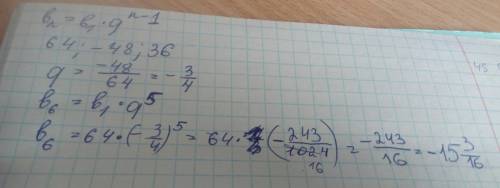 bₙ = b₁ · qⁿ⁻¹
64; -48; 36
q = -48/64 = -3/4
b₆ = b₁ · q⁵
b₆ = 64 · (-3/4)⁵ = 64 · (-243/1024) = -243/16 = -15 3/16
16
45